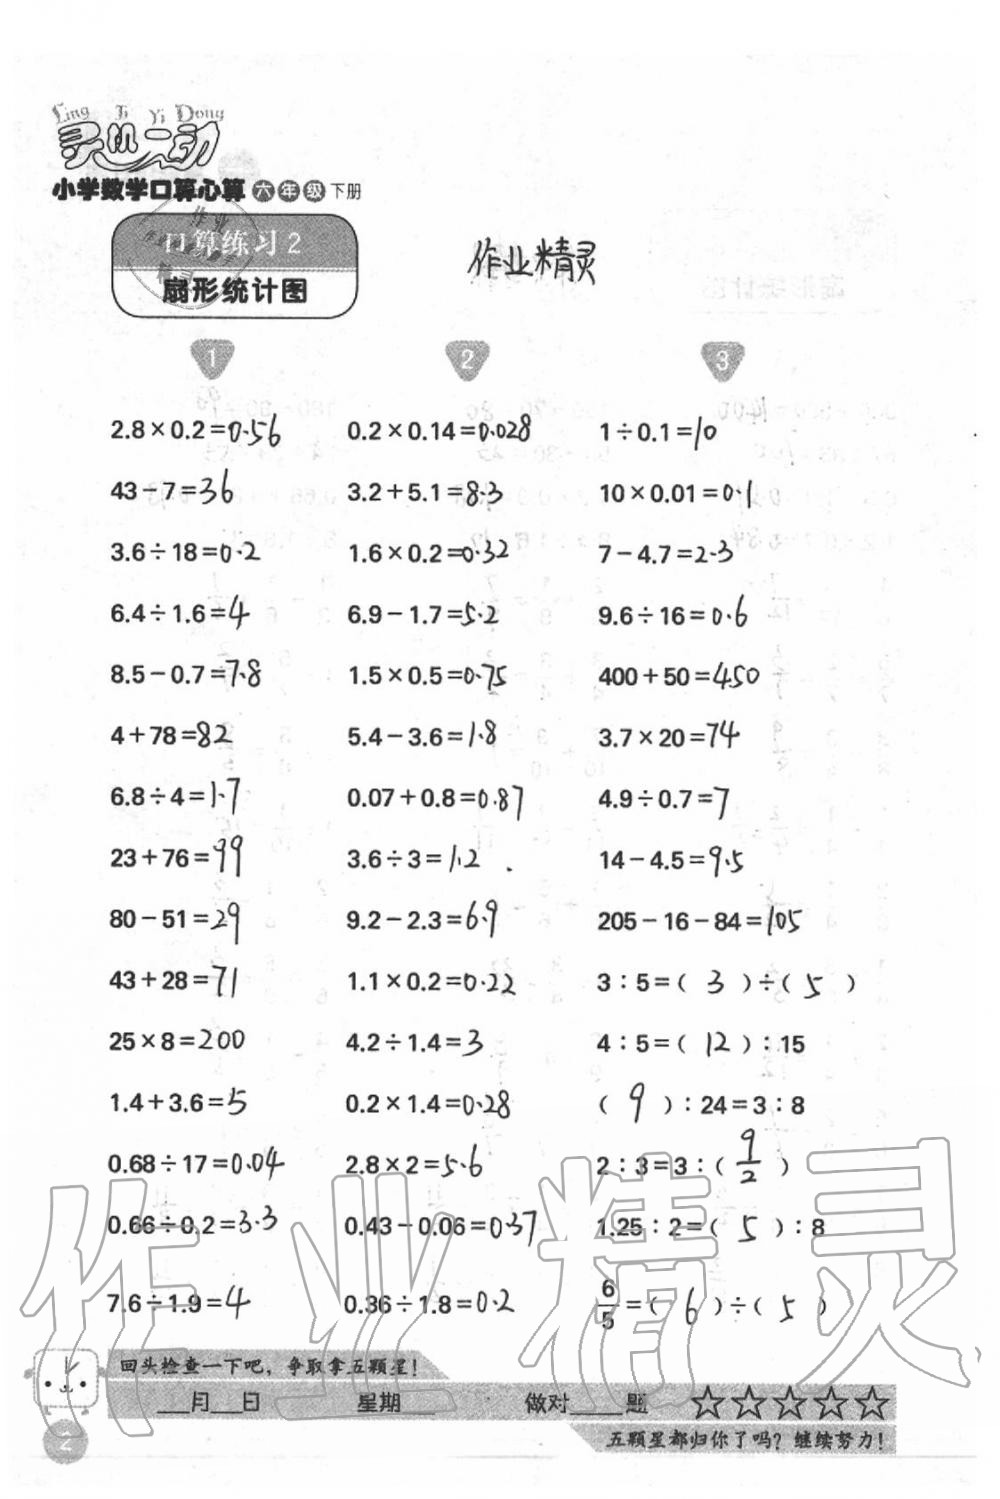 Ling Ji Yi Dong
灵机一动
小学数学口算心算 六年级 下册
口算练习2
扇形统计图
作业精灵
1 2 3
2.8×0.2=0.56 0.2×0.14=0.028 1÷0.1=10
43-7=36 3.2+5.1=8.3 10×0.01=0.1
3.6÷18=0.2 1.6×0.2=0.32 7-4.7=2.3
6.4÷1.6=4 6.9-1.7=5.2 9.6÷16=0.6
8.5-0.7=7.8 1.5×0.5=0.75 400+50=450
4+78=82 5.4-3.6=1.8 3.7×20=74
6.8÷4=1.7 0.07+0.8=0.87 4.9÷0.7=7
23+76=99 3.6÷3=1.2 14-4.5=9.5
80-51=29 9.2-2.3=6.9 205-16-84=105
43+28=71 1.1×0.2=0.22 3:5=(3)÷(5)
25×8=200 4.2÷1.4=3 4:5=(12):15
1.4+3.6=5 0.2×1.4=0.28 (9):24=3:8
0.68÷17=0.04 2.8×2=5.6 2:3=3:(9/2)
0.66÷0.2=3.3 0.43-0.06=0.37 1.25:2=(5):8
7.6÷1.9=4 0.36÷1.8=0.2 6/5=(6)÷(5)
作业精灵
回头检查一下吧，争取拿五颗星！
___月___日 星期___ 做对____题
2
五颗星都归你了吗？继续努力！